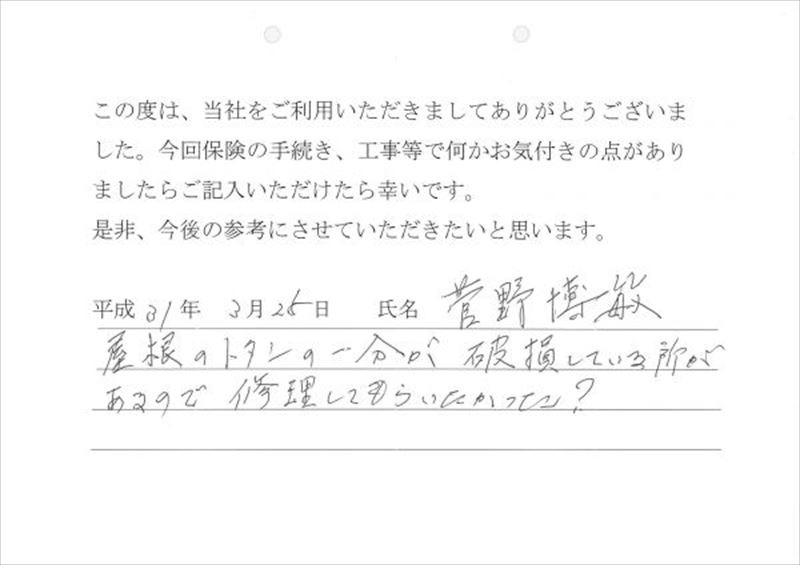 この度は、当社をご利用いただきましてありがとうございま
した。今回保険の手続き、工事等で何かお気付きの点があり
ましたらご記入いただけたら幸いです。
是非、今後の参考にさせていただきたいと思います。
平成 31 年 3 月 25 日 氏名 菅野博敏
屋根のトタンの一分が 破損している所が
あるので 修理してもらいたかった?